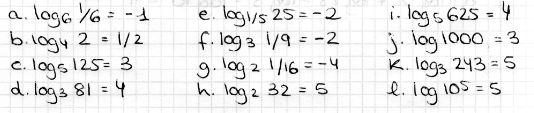 a. log₆ 1/6 = -1
b. log₄ 2 = 1/2
c. log₅ 125 = 3
d. log₃ 81 = 4
e. log₁/₅ 25 = -2
f. log₃ 1/9 = -2
g. log₂ 1/16 = -4
h. log₂ 32 = 5
i. log₅ 625 = 4
j. log 1000 = 3
k. log₃ 243 = 5
l. log 10⁵ = 5